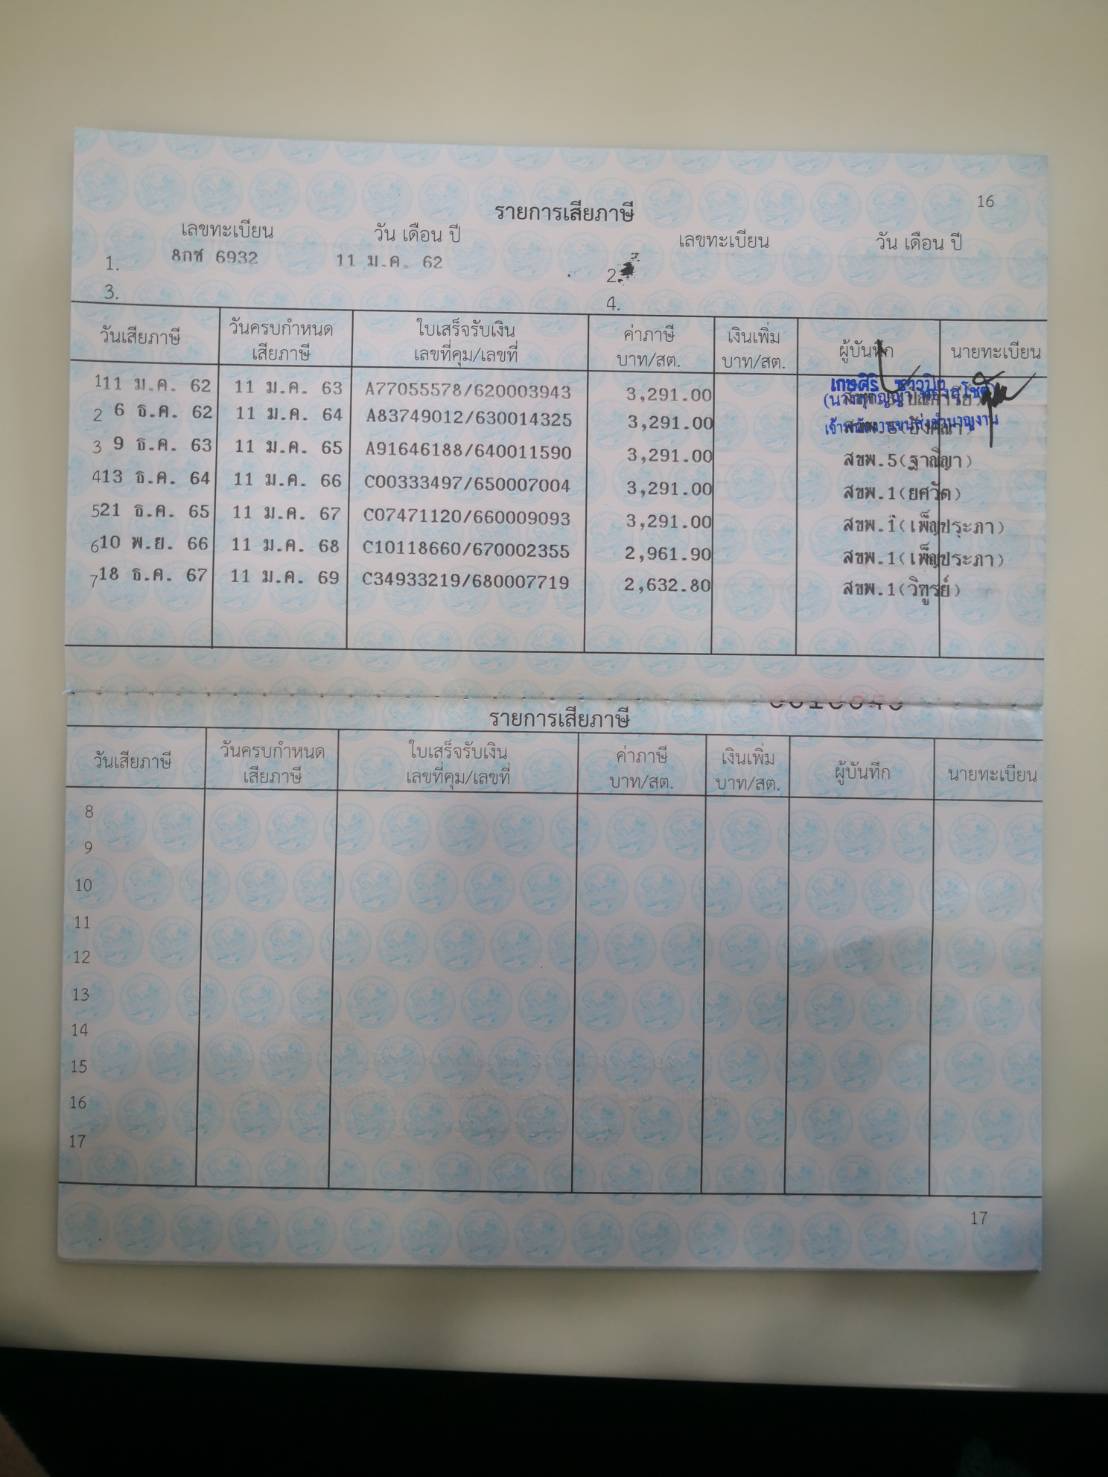 16
รายการเสียภาษี
เลขทะเบียน วัน เดือน ปี เลขทะเบียน วัน เดือน ปี
1. 8กช 6932 11 ม.ค. 62 2.
3. 4.
วันเสียภาษี วันครบกำหนดเสียภาษี ใบเสร็จรับเงิน เลขที่คุม/เลขที่ ค่าภาษี บาท/สต. เงินเพิ่ม บาท/สต. ผู้บันทึก นายทะเบียน
1 11 ม.ค. 62 11 ม.ค. 63 A77055578/620003943 3,291.00 เกษศิริ
2 6 ธ.ค. 62 11 ม.ค. 64 A83749012/630014325 3,291.00
3 9 ธ.ค. 63 11 ม.ค. 65 A91646188/640011590 3,291.00 สขพ.5(ฐาณิญา)
4 13 ธ.ค. 64 11 ม.ค. 66 C00333497/650007004 3,291.00 สขพ.1(ยศวัต)
5 21 ธ.ค. 65 11 ม.ค. 67 C07471120/660009093 3,291.00 สขพ.1(เพ็ญประภา)
6 10 พ.ย. 66 11 ม.ค. 68 C10118660/670002355 2,961.90 สขพ.1(เพ็ญประภา)
7 18 ธ.ค. 67 11 ม.ค. 69 C34933219/680007719 2,632.80 สขพ.1(วิฑูรย์)
รายการเสียภาษี
วันเสียภาษี วันครบกำหนดเสียภาษี ใบเสร็จรับเงิน เลขที่คุม/เลขที่ ค่าภาษี บาท/สต. เงินเพิ่ม บาท/สต. ผู้บันทึก นายทะเบียน
8
9
10
11
12
13
14
15
16
17
17